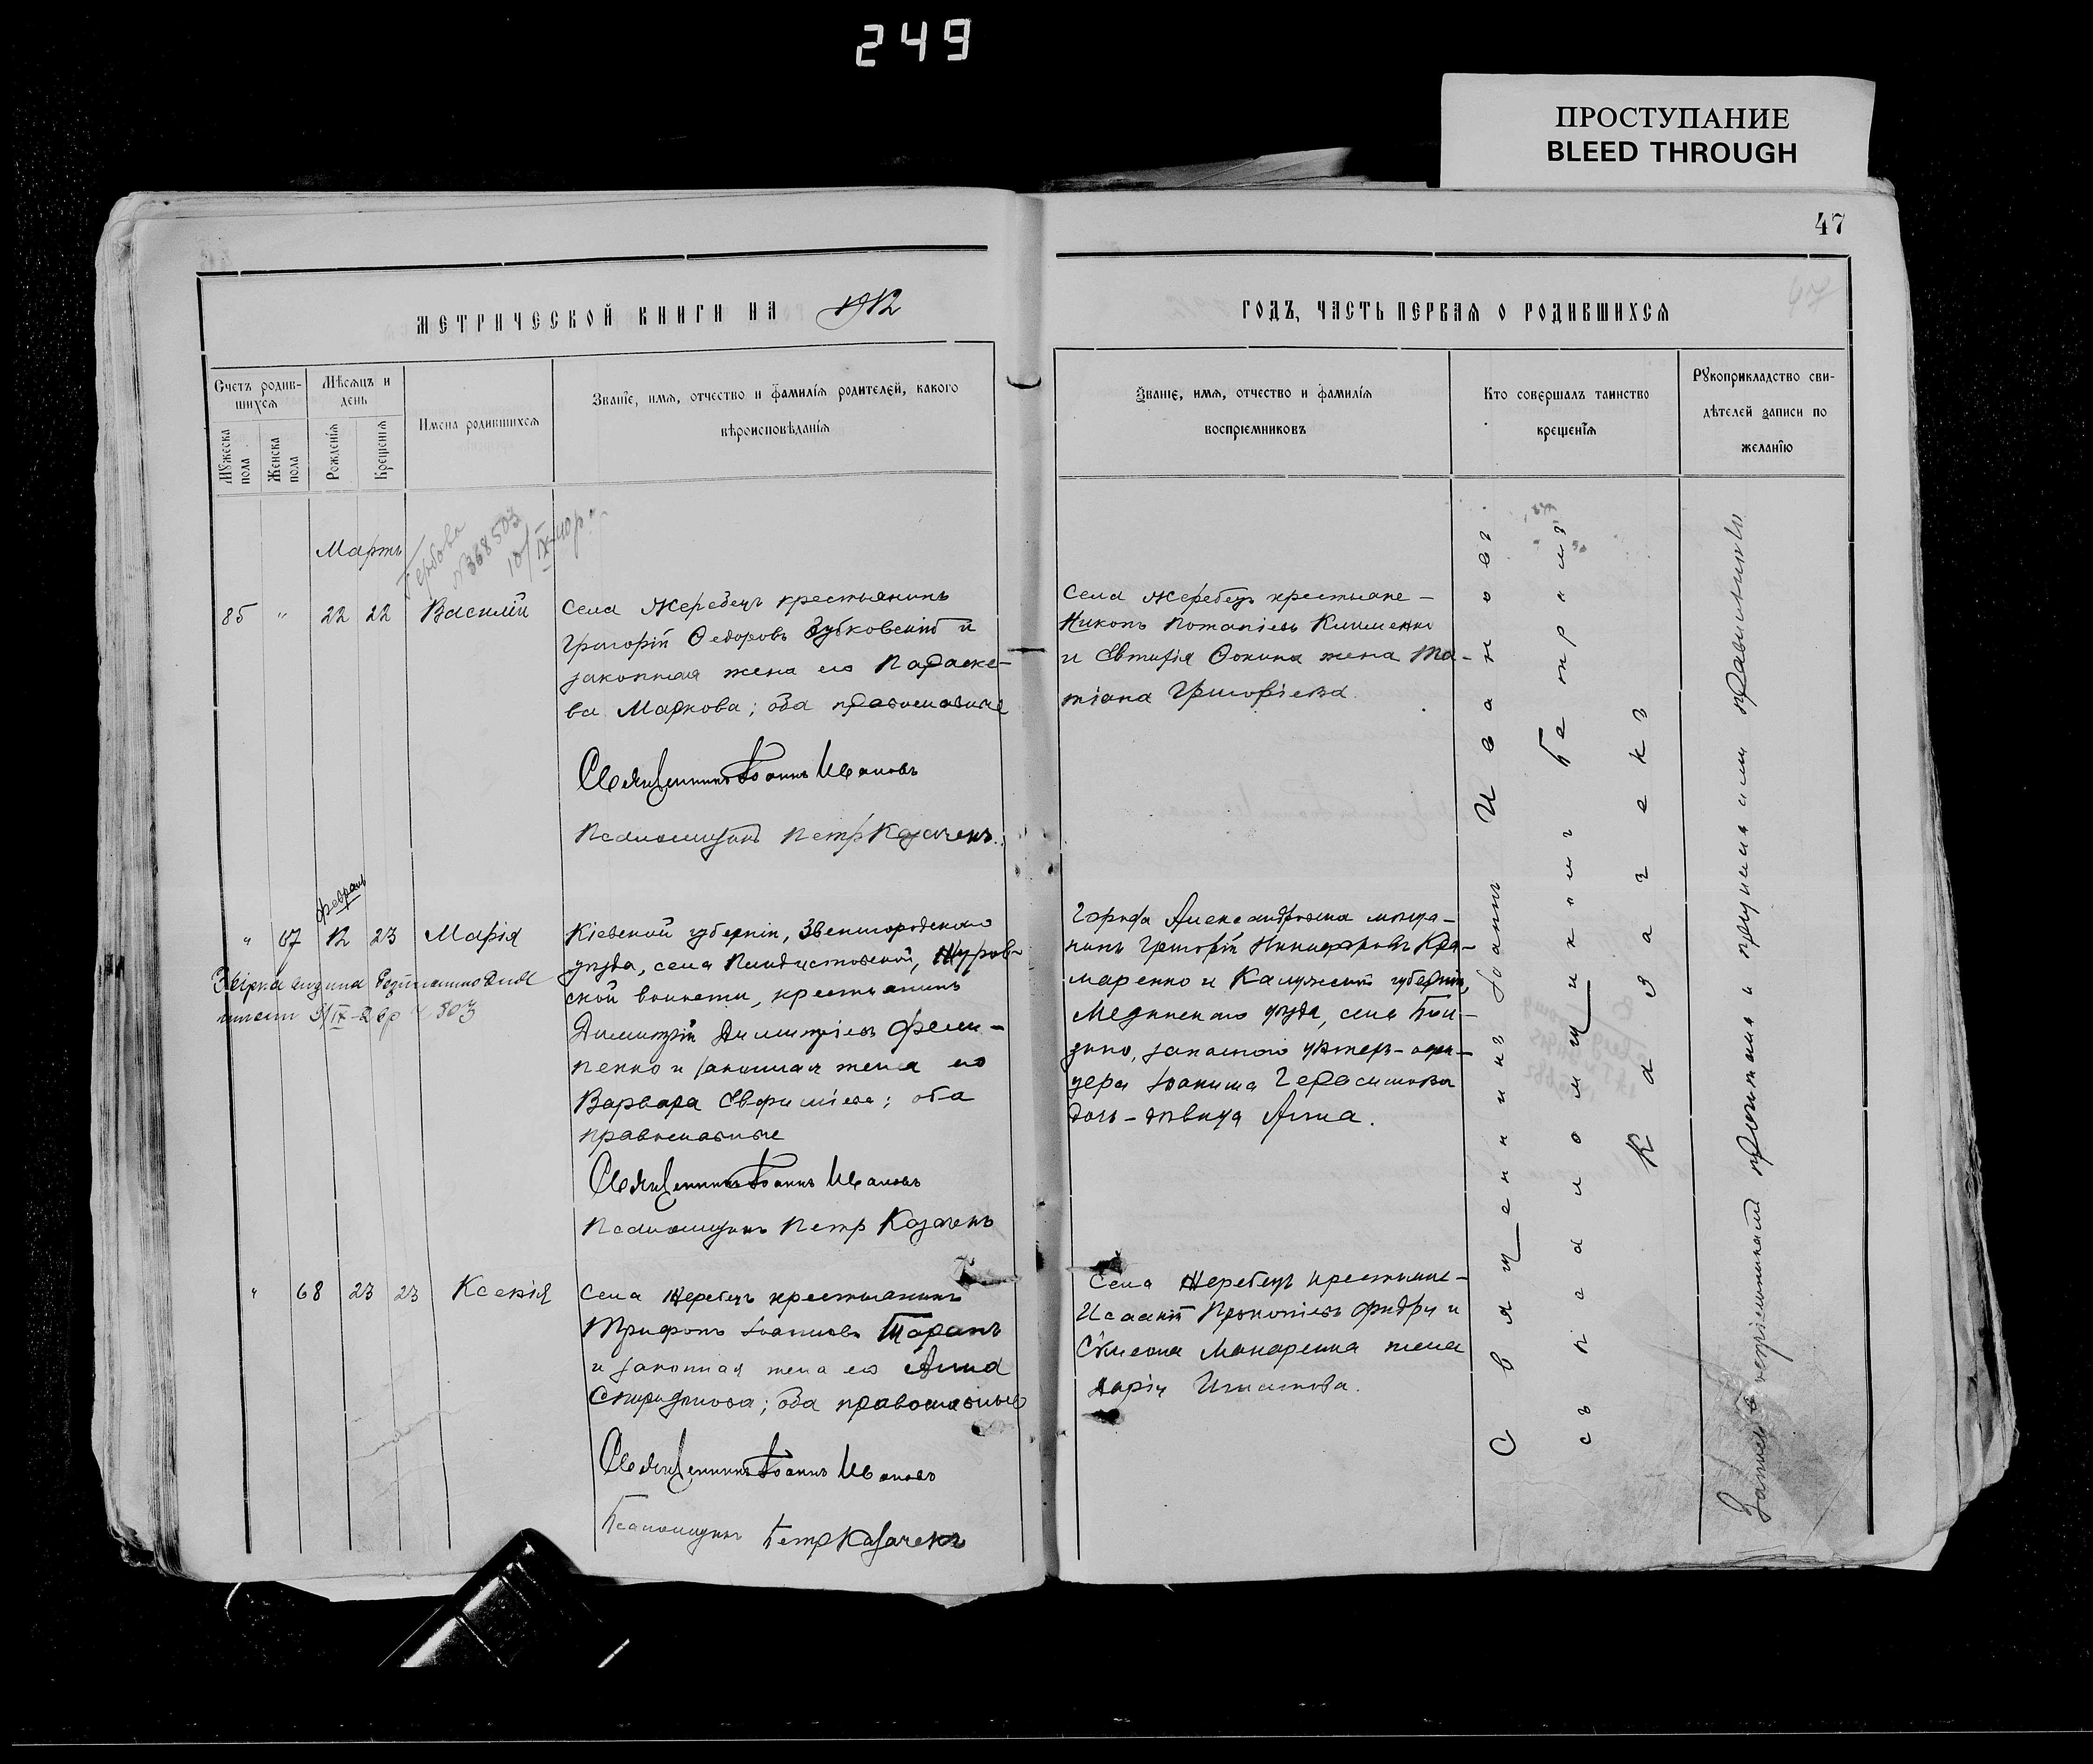 249
ПРОСТУПАНИЕ
BLEED THROUGH
47
МЕТРИЧЕСКОЙ КНИГИ НА 1912
ГОДЪ, ЧАСТЬ ПЕРВАЯ О РОДИВШИХСЯ
Счетъ родив-
шихся
Мужеска пола
Женска пола
Мѣсяцъ и
день
Рожденія
Крещенія
Имена родившихся
Званіе, имя, отчество и фамилія родителей, какого
вѣроисповѣданія
Званіе, имя, отчество и фамилія
воспріемниковъ
Кто совершалъ таинство
крещенія
Рукоприкладство сви-
дѣтелей записи по
желанію
Мартъ
N 368503
85 " 22 22 Василій
Села Жеребецъ крестьянинъ
Григорій Ѳедоровъ Зубковскій и
законная жена его Параске-
ва Маркова; оба православные
Священникъ Іоаннъ Ивановъ
Псаломщикъ Петръ Казачекъ
Села Жеребецъ крестьяне -
Никонъ Потапіевъ Клименко
и Евтихія Ѳокина жена Та-
тіана Григоріева.
Февраль
" 67 12 23 Марія
Кіевской губерніи, Звенигородскаго
уѣзда, села, Журов-
ской волости, крестьянинъ
Димитрій Димитріевъ
и законная жена его
Варвара Евфиміева; оба
православные
Священникъ Іоаннъ Ивановъ
Псаломщикъ Петръ Казачекъ
Города Александровска мѣща-
нинъ Григорій Никифоровъ Кра-
маренко и Калужской губерніи,
Медынскаго уѣзда, села
запаснаго унтеръ-офи-
цера Іоанна Герасимова
дочь - дѣвица Анна.
" 68 23 23 Ксенія
Села Жеребецъ крестьянинъ
Трифонъ Іоанновъ Таранъ
и законная жена его Анна
Спиридонова; оба православные
Священникъ Іоаннъ Ивановъ
Псаломщикъ Петръ Казачекъ
Села Жеребецъ крестьяне -
Исаакій Прокопіевъ и
Симеона Макаренка жена
Дарія Игнатова.
Священникъ Іоаннъ Ивановъ
съ псаломщикомъ Петромъ
Казачекъ